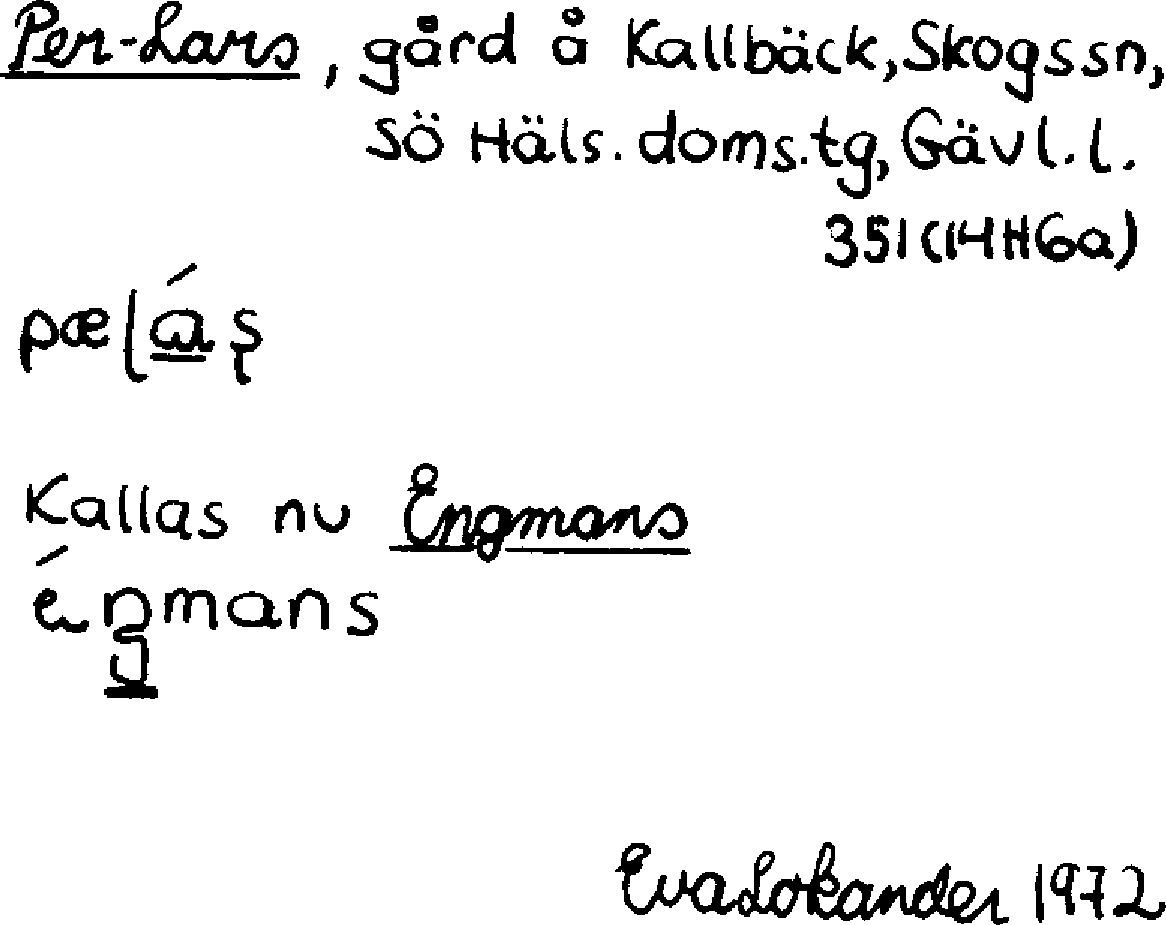 Per-Lars, gård å Kallbäck, Skogssn,
Sö Häls. doms.tg, Gävl. l.
351 (14H6a)
pælɑ́ʂ
Kallas nu Engmans
éŋmans
Eva Lokander 1972